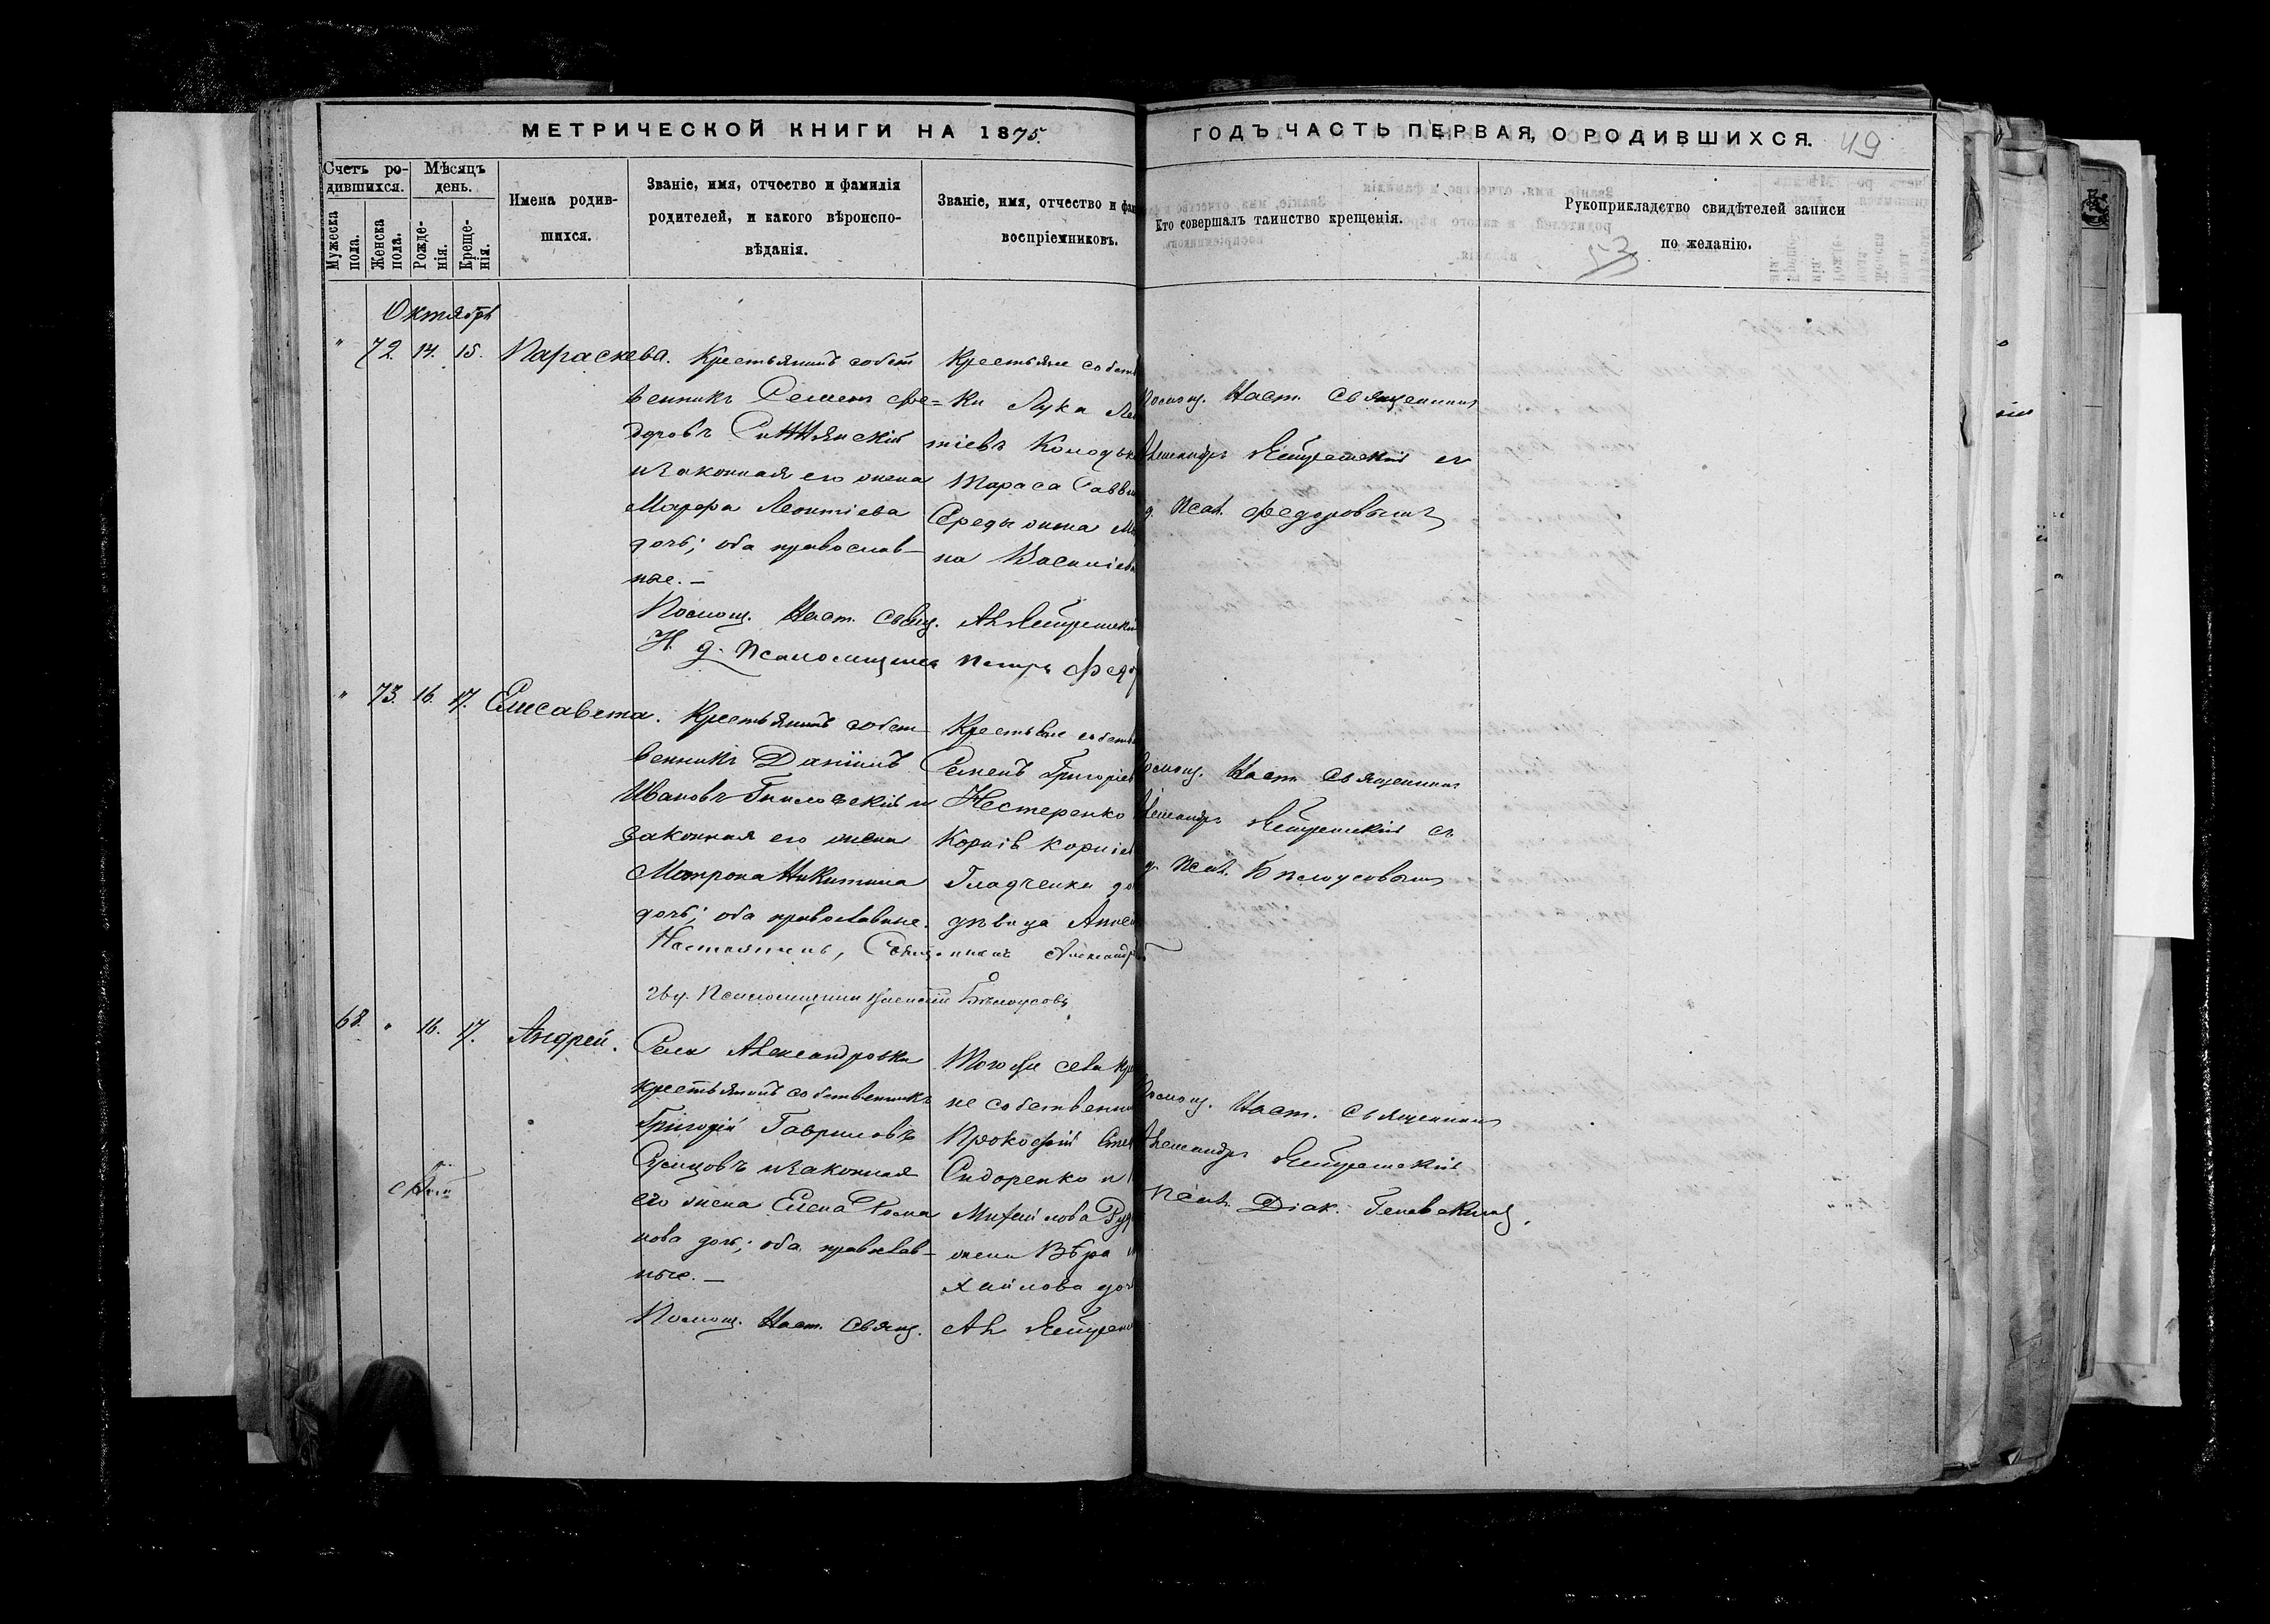 МЕТРИЧЕСКОЙ КНИГИ НА 1875.
ГОДЪ ЧАСТЬ ПЕРВАЯ, О РОДИВШИХСЯ.
49
Счетъ родившихся.
Мѣсяцъ день.
Мужеска пола.
Женска пола.
Рожденія.
Крещенія.
Имена родившихся.
Званіе, имя, отчество и фамилія
родителей, и какого вѣроиспо-
вѣданія.
Званіе, имя, отчество и фам
воспріемниковъ.
Кто совершалъ таинство крещенія.
Рукоприкладство свидѣтелей записи
по желанію.
53
Октябрь
" 72. 14. 15. Параскева.
Крестьянинъ собст
венникъ Семенъ Фе=
доровъ
и законная его жена
Марфа Леонтіева
дочь; оба православ-
ные.—
Помощ. Наст. Свящ.
Н. д. Псаломщика Петръ Федо
Крестьяне собств
ки Лука Ле
тіевъ
Тараса Савви
Середы жена
на Василіев
Помощ. Наст. Священник
Александръ съ
д. Псал. Федоровымъ
" 73. 16. 17. Елисавета.
Крестьянинъ собст-
венникъ Даніилъ
Ивановъ и
законная его жена
Матрона Никитина
дочь; оба православные.
Настоятель, Священникъ Александръ
Псаломщика Бѣлоусовъ
Крестьяне собств
Семенъ Григоріев
Нестеренко
Корнія Корніев
Гладченка до
дѣвица
Помощ. Наст. Священник
Александръ съ
д. Псал. Бѣлоусовымъ
68. " 16. 17. Андрей.
Села Александровки
крестьянинъ собственникъ
Григорій Гавриловъ
и законная
его жена Елена
нова дочь; оба православ-
ные.—
Помощ. Наст. Свящ. Ал
Того же села кре
не собственни
Прокофій Сте
Сидоренко и
Михайлова
жена Вѣра
хайлова доч
Помощ. Наст. Священник
Александръ
Псал. Діак.